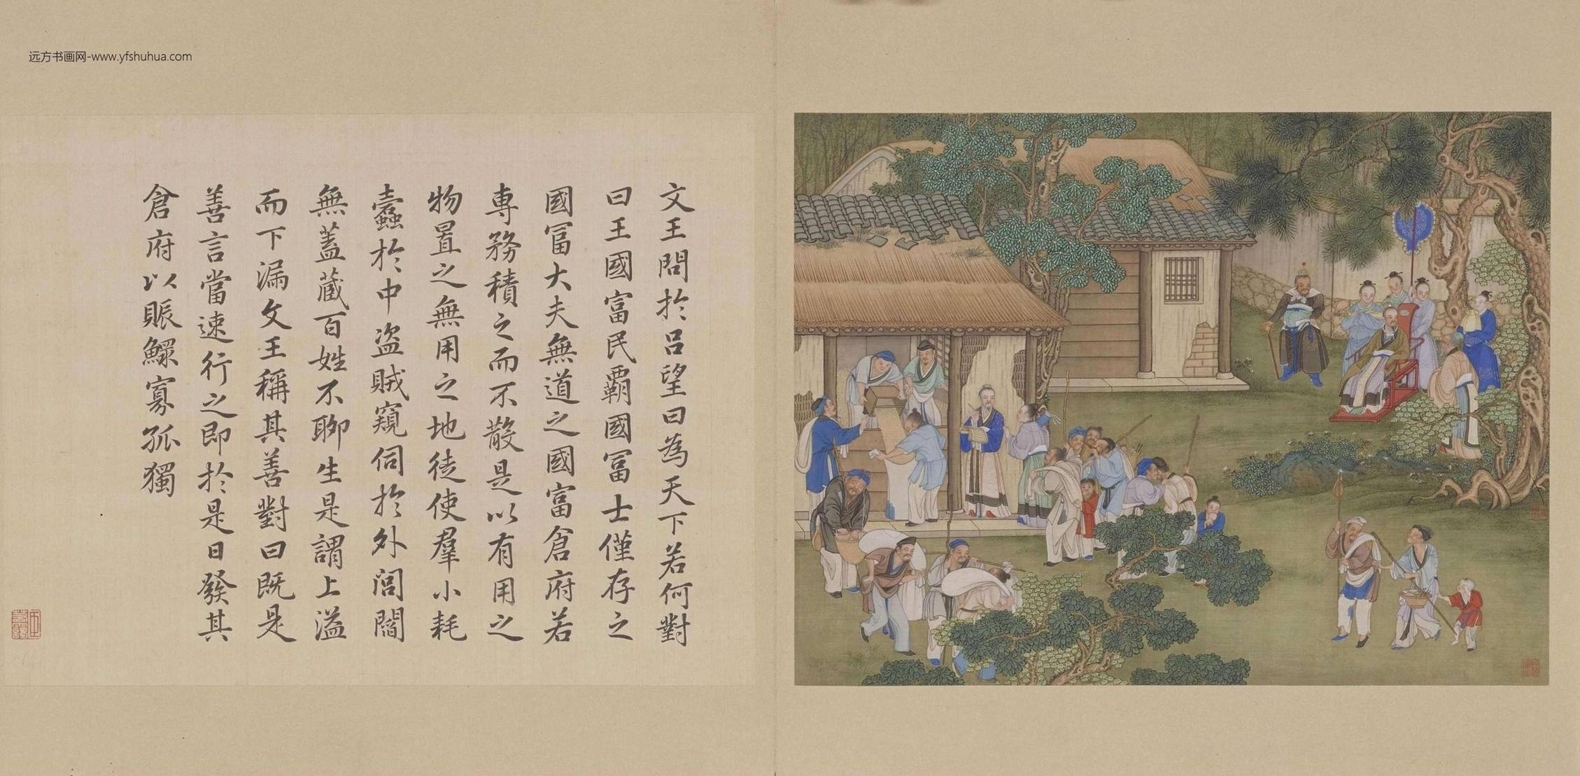 远方书画网-www.yfshuhua.com
文王問於吕望曰為天下若何對
曰王國富民霸國冨士僅存之
國冨大夫無道之國富倉府若
專務積之而不散是以有用之
物置之無用之地徒使羣小耗
蠹於中盗賊窺伺於外閭閻
無蓋蔵百姓不聊生是謂上溢
而下漏文王稱其善對曰既是
善言當速行之即於是日發其
倉府以賑鰥寡孤獨